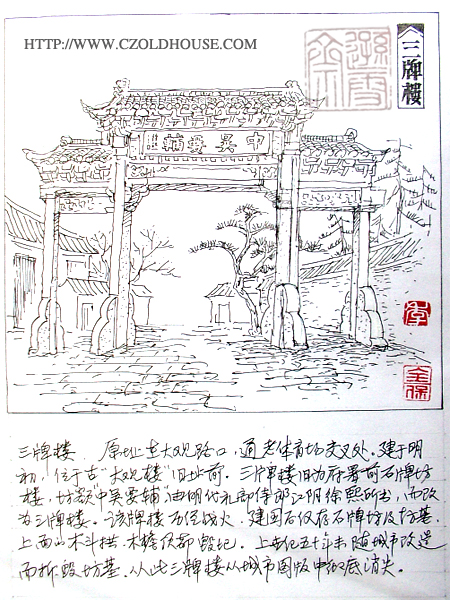 HTTP://WWW.CZOLDHOUSE.COM
三牌樓
中吳要輔
李
三牌楼、原址在大观路口,通老体育场交叉处。建于明
初,位于古"大观楼"旧址前。三牌楼旧为府署前石牌坊
楼,坊额中吴要辅,由明代礼部侍郎江阴徐熙所书,而改
为三牌楼。该牌楼历经战火,建国后仅存石牌坊及坊基,
上面的木斗拱木檐俱都毁圮。上世纪五十年末随城市改造
而拆毁坊基。从此三牌楼从城市图版中彻底消失。